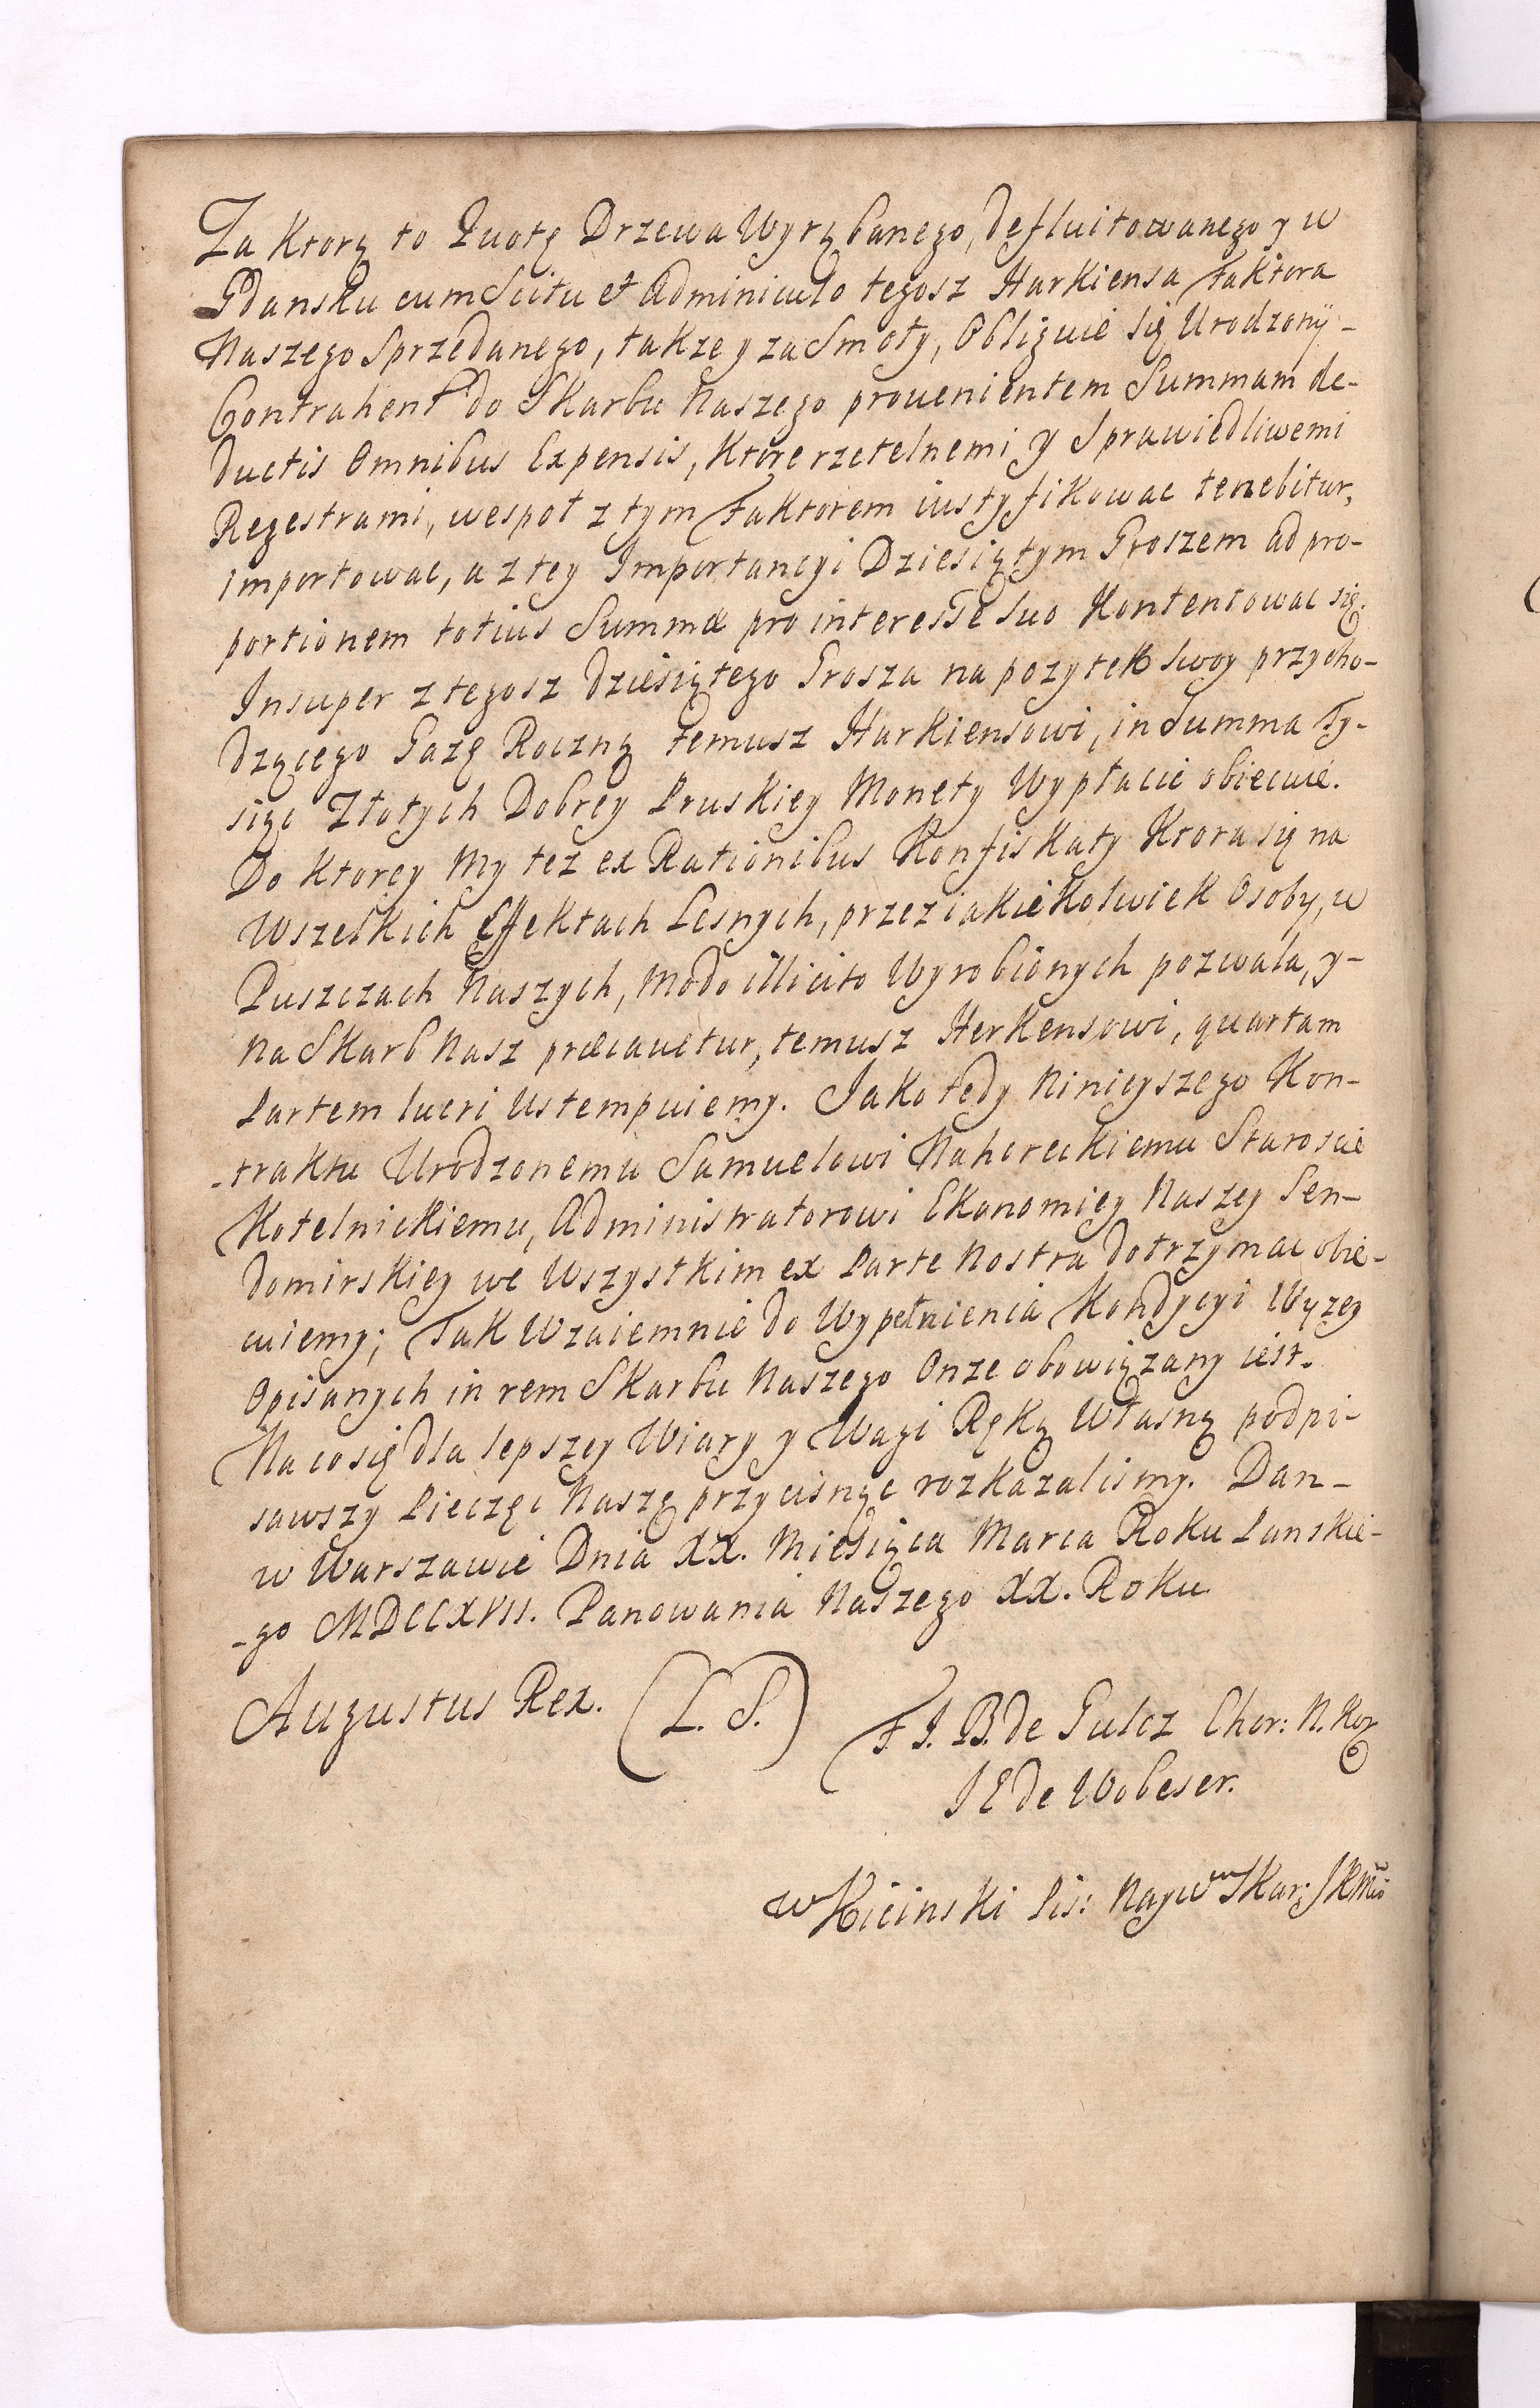 Za Ktorą to Quotę Drzewa Wyrąbanego, defluitowanego y w
Gdansku cum Scitu et Adminiculo tegosz Harkiensa Faktora
Naszego Sprzedanego, takze y za Smoły, Obliguie się Urodzony-
Contrahent do Skarbu Naszego prouenientem Summam de-
ductis Omnibus Expensis, Ktore rzetelnemi y Sprawiedliwemi
Regestrami, wespoł z tym Faktorem iustyfikowac tenebitur,
importowac, a z tey Importancyi Dziesiątym Groszem ad pro-
portionem totius Summæ pro interesse suo Kontentowac się.
Insuper z tegosz dziesiątego Grosza na pozytek swoy przycho-
dzącego Gazę Roczną temusz Harkiensowi, in Summa Ty-
siąc Złotych Dobrey Pruskiey Monety Wypłacic obiecuie.
Do Ktorey My tez ex Rationibus Konfiskaty Ktora się na
Wszelkich Effektach Lesnych, przez iakiekolwiek Osoby, w
Puszczach Naszych, modo illicito Wyrobionych pozwala, y-
na Skarb Nasz præcauetur, temusz Herkensowi, quartam
Partem lucri Ustempuiemy. Jako tedy Ninieyszego Kon-
-traktu Urodzonemu Samuelowi Nahoreckiemu Staroscie
Kotelnickiemu, Administratorowi Ekonomiey Naszey Sen-
domirskiey we Wszystkim ex Parte Nostra dotrzymac obie-
cuiemy; Tak Wzaiemnie do Wypełnienia Kondycyi Wyzey
Opisanych in rem Skarbu Naszego Onze obowiązany iest.
Na co się dla lepszey Wiary y Wagi Ręką Własną podpi-
sawszy Pieczęc Naszę przycisnąc rozkazalismy. Dan-
w Warszawie Dnia XX. Miesiąca Marca Roku Panskie-
-go MDCCXVII. Panowania Naszego XX. Roku
Augustus Rex. (L. S.) F. J. B. de Gulcz Chor: N. Kor
J E de Wobeser.
W Kicinski Pis: Nayw Skar: JKMci